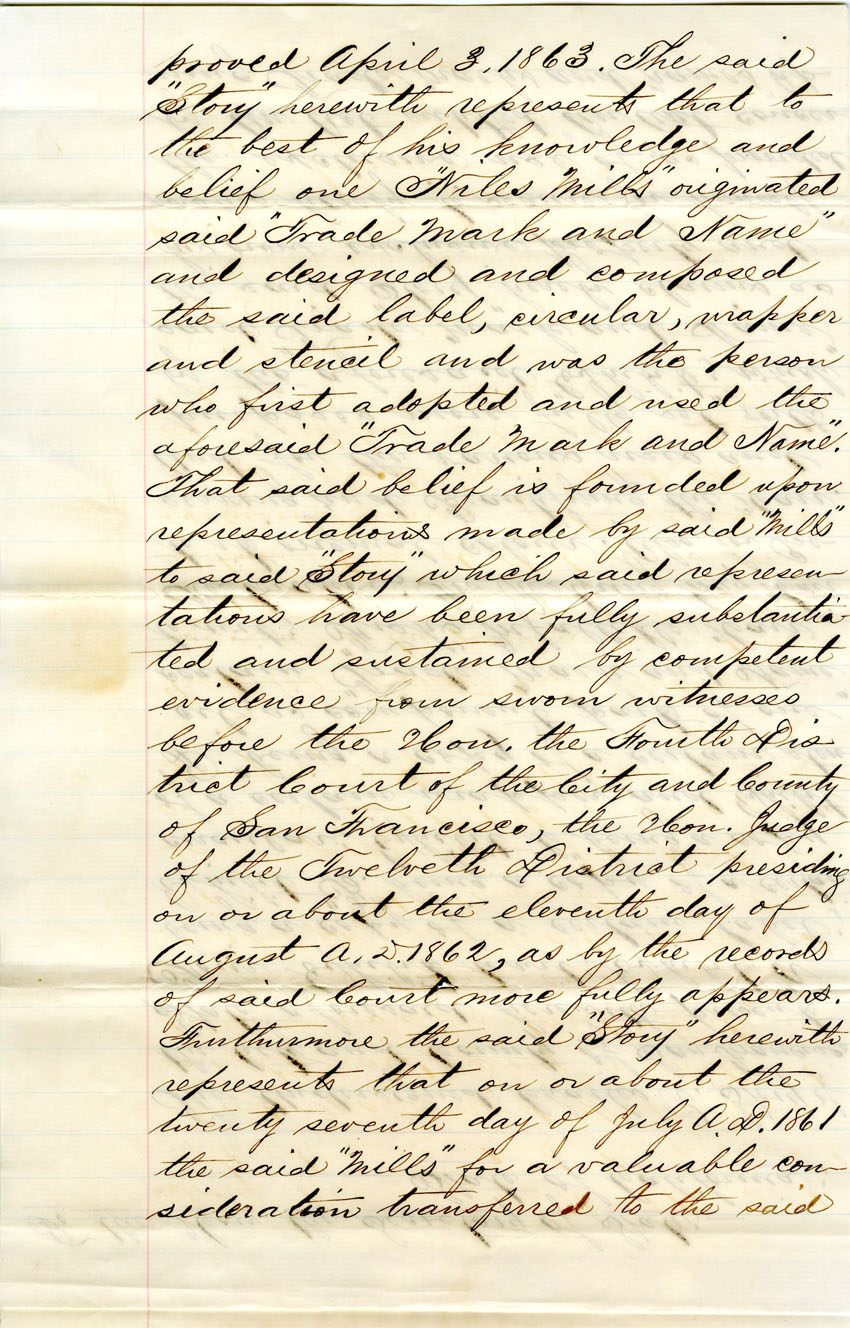 proved April 3, 1863. The said
"Story" herewith represents that to
the best of his knowledge and
belief one "Niles Mills" originated
said "Trade Mark and Name"
and designed and composed
the said label, circular, wrapper
and stencil and was the person
who first adopted and used the
aforesaid "Trade Mark and Name".
That said belief is founded upon
representations made by said "Mills"
to said "Story" which said represen-
tations have been fully substantia-
ted and sustained by competent
evidence from sworn witnesses
before the Hon. the Fourth Dis
trict Court of the City and County
of San Francisco, the Hon. Judge
of the Twelveth District presiding
on or about the eleventh day of
August A.D. 1862, as by the records
of said Court more fully appears.
Furthurmore the said "Story" herewith
represents that on or about the
twenty seventh day of July A.D. 1861
the said "Mills" for a valuable con-
sideration transferred to the said